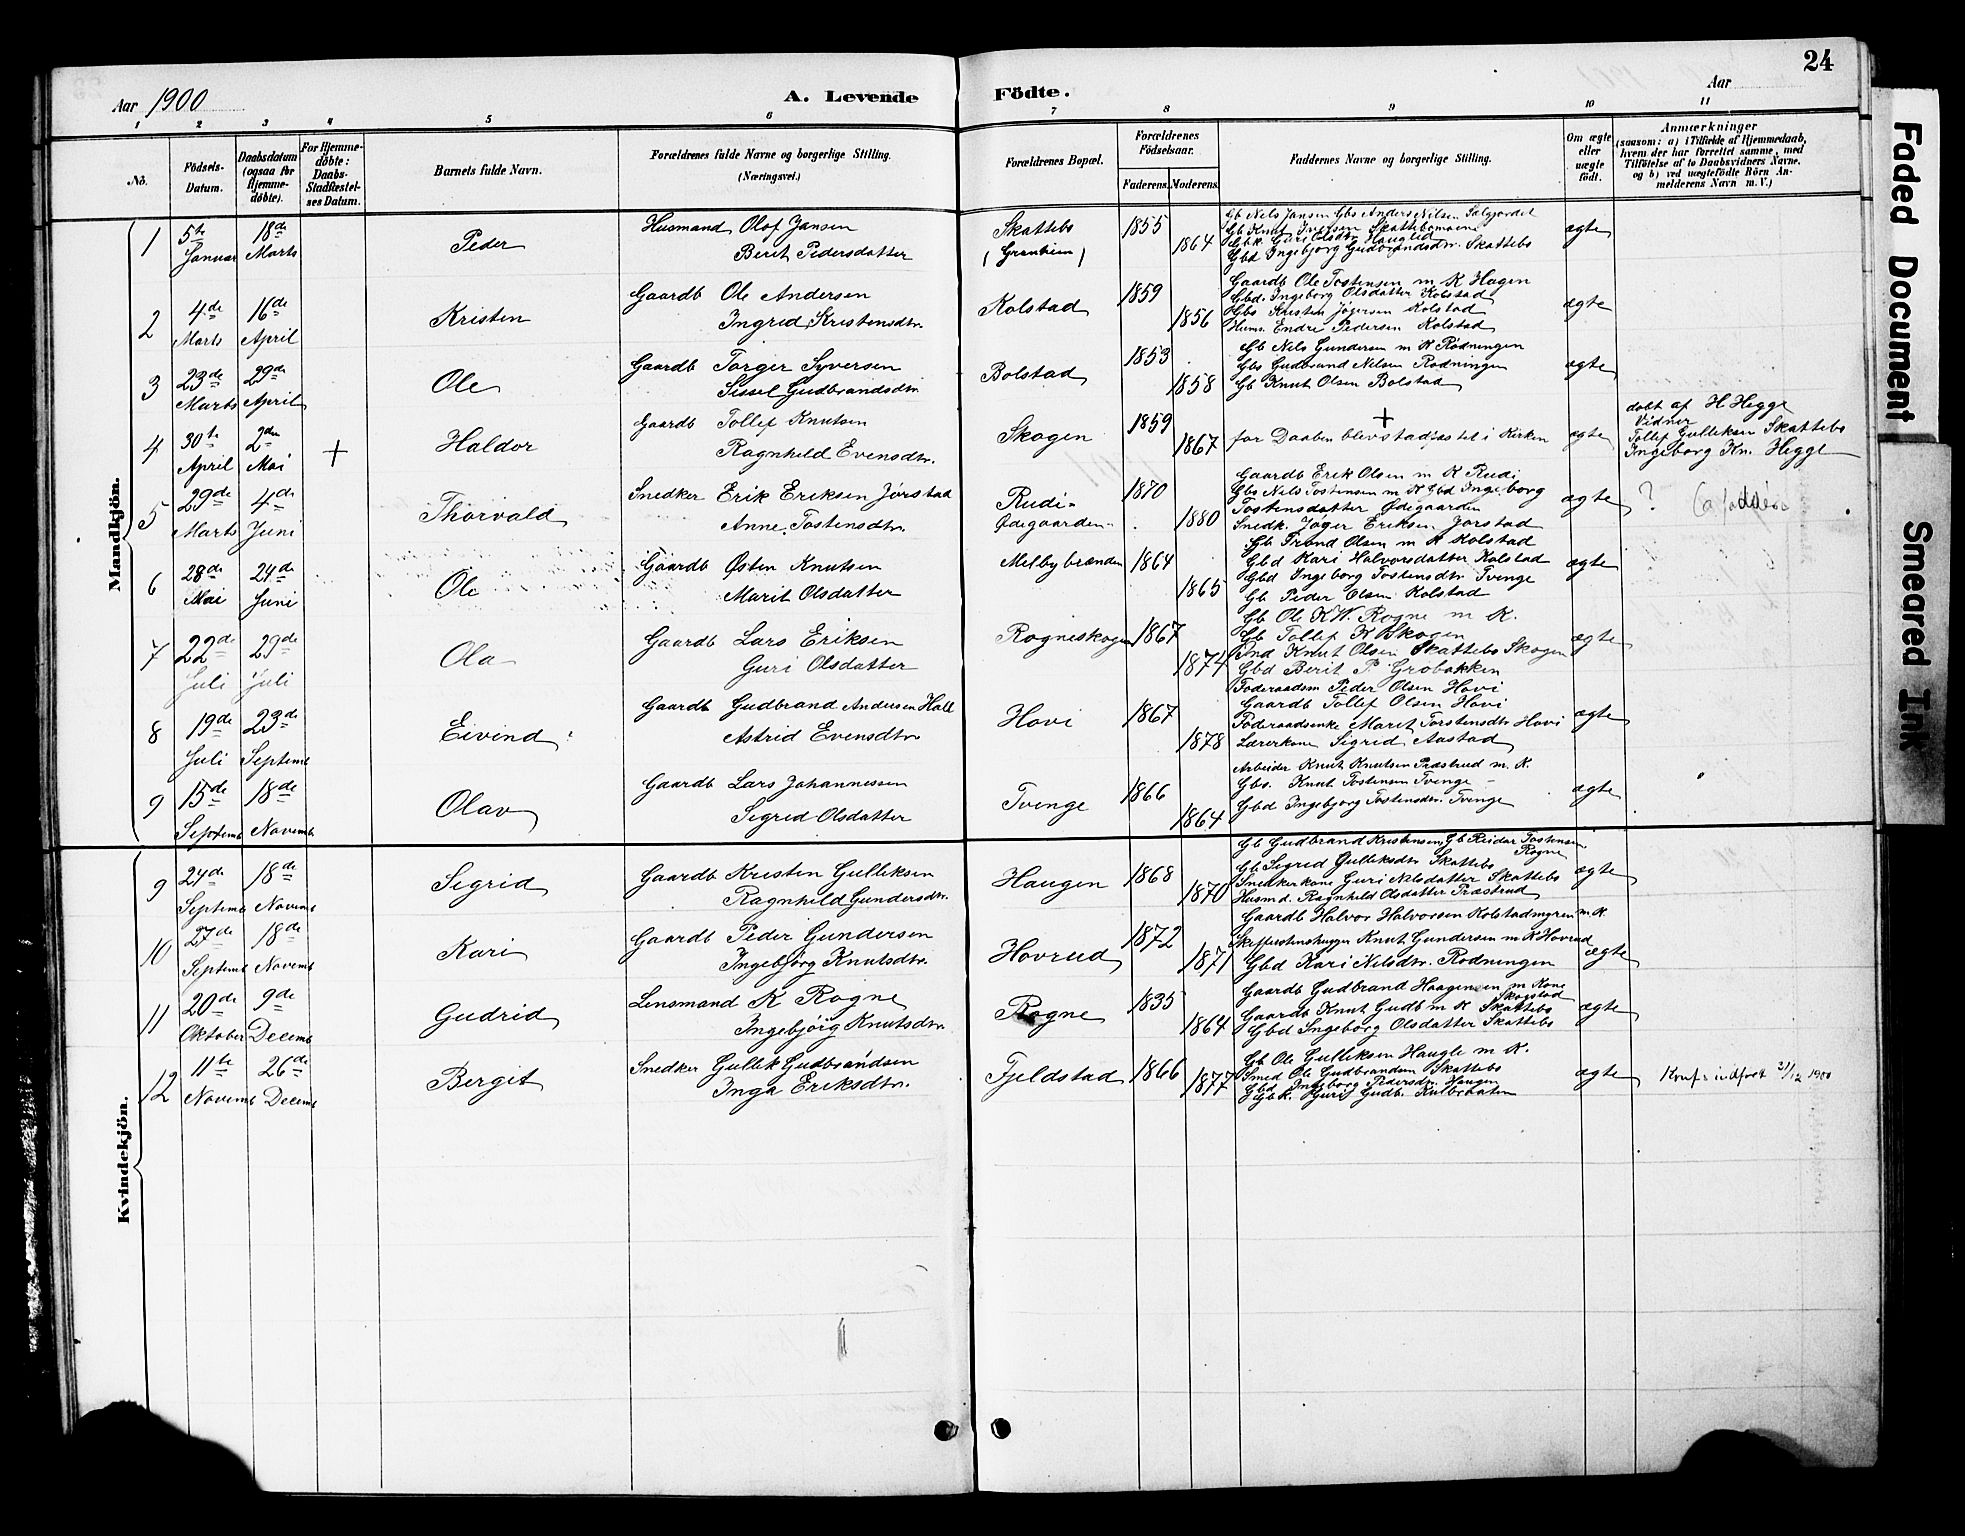 24
Aar 1900
A. Levende
Födte.
Aar
1 2 3 4 5 6 7 8 9 10 11
No.
Födsels-Datum.
Daabsdatum (ogsaa for Hjemme-døbte).
For Hjemme-døbte: Daabs-Stadfæstel-ses Datum.
Barnets fulde Navn.
Forældrenes fulde Navne og borgerlige Stilling. (Næringsvei.)
Forældrenes Bopæl.
Forældrenes Födselsaar.
Faderens. Moderens.
Faddernes Navne og borgerlige Stilling.
Om ægte eller uægte födt.
Anmærkninger
(saasom: a) i Tilfælde af Hjemmedaab, hvem der har forrettet samme, med Tilföielse af to Daabsvidners Navne, og b) ved uægtefödte Börn An-melderens Navn m. V.)
Mandkjön.
1 5te Januar 18de Marts Peder Husmand Olof Jansen
Berit Pedersdatter
Skattebo (Granheim) 1855 1864
Gb Nels Jansen Gbs Anders Nilsen
Gb Knut Iversen Skattebomoene
Gbk. Guri Olsdtr Hauglid
Gbd Ingebjorg Gudbrandsdtr. Skattebo
ægte
2 4de Marts 16de April Kristen Gaardb Ole Andersen
Ingrid Kristensdtr.
Kolstad 1859 1856
Gaardb Ole Tostensen m K Hagen
Gbd. Ingeborg Olsdatter Kolstad
Gbs Kristen Jøgersen Kolstad
Hum. Endre Pedersen Kolstad
ægte
3 23de Marts 29de April Ole Gaardb Torger Syversen
Sissel Gudbrandsdtr.
Bolstad 1853 1858
Gb Nels Gundersen m K Rodningen
Gbs Gudbrand Nilsen Rodningen
Gb Knut Olsen Bolstad
ægte
4 30te April 2den Mai + Haldor Gaardb Tollef Knutsen
Ragnhild Evensdtr.
Skogen 1859 1867
+
for Daaben blev stadfæstet i Kirken
ægte
døbt af H Hegge
Vidner
Tollef Gulliksen Skattebo
Ingeborg Kn. Hegge
5 29de Marts 4de Juni Thorvald Snedker Erik Eriksen Jørstad
Anne Tostensdtr.
Rudi-Ødegaarden 1870 1880
Gaardb Erik Olsen m K Rudi
Gbs Nils Tostensen m K Gbd Ingeborg
Tostensdatter Ødegaarden
Snedk. Jøger Eriksen Jorstad
ægte ?
6 28de Mai 24de Juni Ole Gaardb Østen Knutsen
Marit Olsdatter
Melbybrænden 1864 1865
Gb Trond Olsen m K Kolstad
Gbd Kari Halvorsdatter Kolstad
Gbd Ingeborg Tostensdtr Tvenge
Gb Peder Olsen Kolstad
ægte
7 22de Juli 29de Juli Ola Gaardb Lars Eriksen
Guri Olsdatter
Rogneskogen 1867 1874
Gb Ole K W. Rogne m K.
Gb Tollef K Skogen
Ind Knut Olsen Skattebo Skogen
Gbd Berit P Grobakken
ægte
8 19de Juli 23de Septemb Eivind Gaardb Gudbrand Andersen Hall
Astrid Evensdtr
Hovi 1867 1878
Foderaadsm Peder Olsen Hovi
Gaardb Tollef Olsen Hovi
Foderaadsenke Marit Torstensdtr Hovi
Lærerkone Sigrid Aastad
ægte
9 15de Septemb 18de Novemb Olav Gaardb Lars Johannessen
Sigrid Olsdatter
Tvenge 1866 1864
Arbeider Knut Knutsen Præstrud m. K.
Gbs. Knut Tostensen Tvenge
Gbd Ingebjorg Tostensdtr. Tvenge
ægte
Kvindekjön.
9 24de Septemb 18de Novemb Sigrid Gaardb Kristen Gulliksen
Ragnhild Gundersdtr.
Haugen 1868 1870
Gb Gudbrand Kristensen, Gb Reidar Tostensen Rogne
Gb Sigrid Gulliksdtr Skattebo
Snedkerkone Guri Nilsdatter Skattebo
Husmd. Ragnhild Olsdatter Præstrud
ægte
10 27de Septemb 18de Novemb Kari Gaardb Peder Gundersen
Ingebjörg Knutsdtr.
Hovrud 1872 1871
Gaardb Halvor Halvorsen Kolstadmyren m. K.
Skiferstenshugger Knut Gundersen m K Hovrud
Gbd Kari Nilsdtr. Rodningen
ægte
11 20de Oktober 9de Decemb Gudrid Lensmand K Rogne
Ingebjörg Knutsdtr.
Rogne 1835 1864
Gaardb Gudbrand Haagensen m Kone Skogstad
Gaardb Knut Gudb m K Skattebo
Gbd Ingeborg Olsdatter Skattebo
ægte
12 11te Novemb 26de Decemb Bergit Snedker Gullik Gudbrandsen
Inga Eriksdtr.
Fjeldstad 1866 1877
Gb Ole Gulliksen Haugle m K.
Smed Ole Gudbrandsen Skattebo
Gbd Ingeborg Pedersdtr. Haugen
Gbk. Guri Gudb. Kulbraaten
ægte
Konf: indført 31/12 1900
Faded Document
Smeared Ink